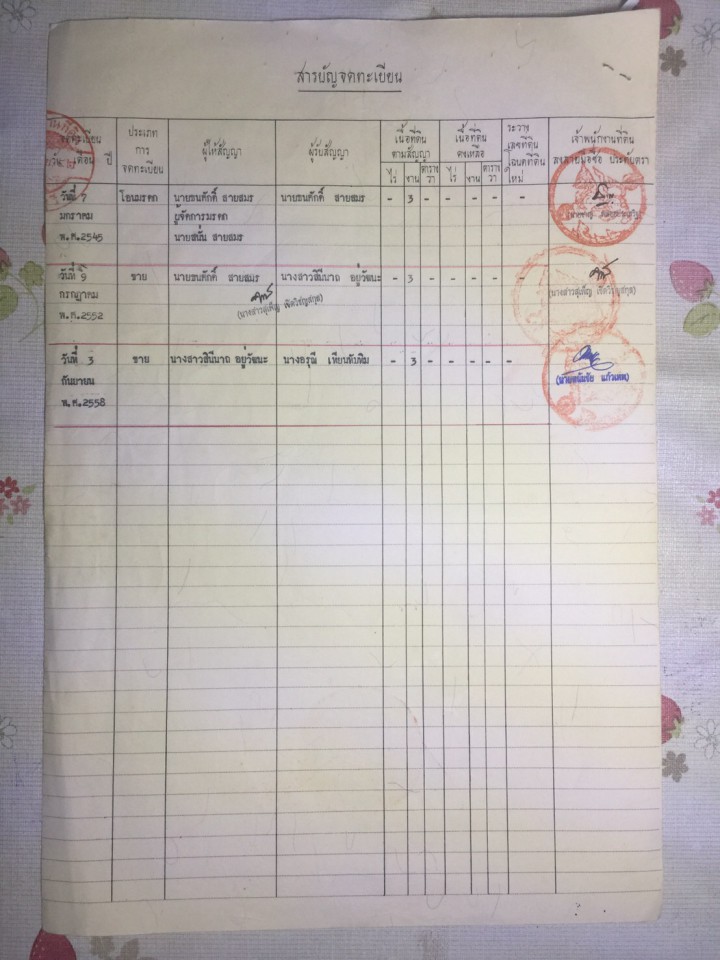 สารบัญจดทะเบียน
จดทะเบียน
วัน เดือน ปี
ประเภท
การ
จดทะเบียน
ผู้ให้สัญญา
ผู้รับสัญญา
เนื้อที่ดิน
ตามสัญญา
ไร่ งาน ตาราง
วา
เนื้อที่ดิน
คงเหลือ
ไร่ งาน ตาราง
วา
ระวาง
เลขที่ดิน
โฉนดที่ดิน
ใหม่
เจ้าพนักงานที่ดิน
ลงลายมือชื่อ ประทับตรา
วันที่ 7 โอนมรดก นายธนศักดิ์ สายสมร นายธนศักดิ์ สายสมร - 3 - - - - -
มกราคม ผู้จัดการมรดก
พ.ศ.2545 นายสนั่น สายสมร
วันที่ 9 ขาย นายธนศักดิ์ สายสมร นางสาวสินีนาถ อยู่วัฒนะ - 3 - - - - -
กรกฎาคม
พ.ศ.2552
วันที่ 3 ขาย นางสาวสินีนาถ อยู่วัฒนะ นางอรุณี เทียนทับทิม - 3 - - - - -
กันยายน
พ.ศ.2558